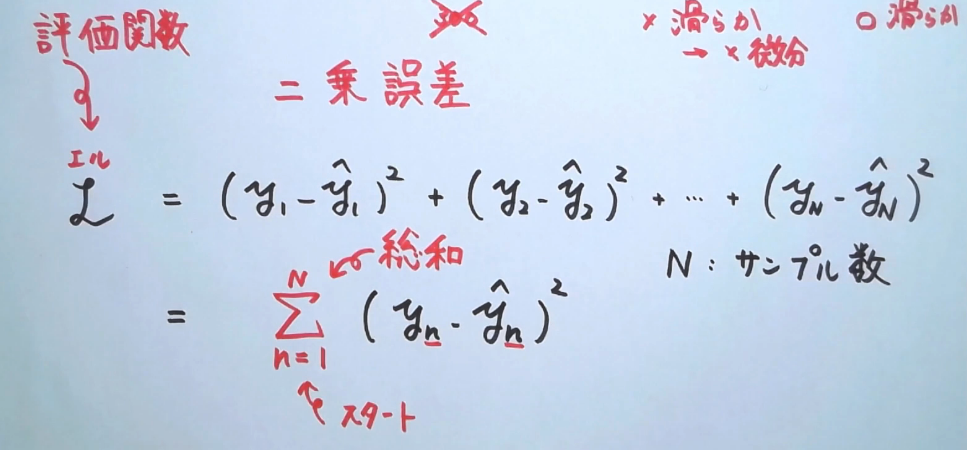 評価関数
× 滑らか
→ × 微分
○ 滑らか
二乗誤差
エル
ℒ = (y₁-ŷ₁)² + (y₂-ŷ₂)² + … + (y_N-ŷ_N)²
総和
N : サンプル数
= Σ_{n=1}^{N} (y_n-ŷ_n)²
スタート